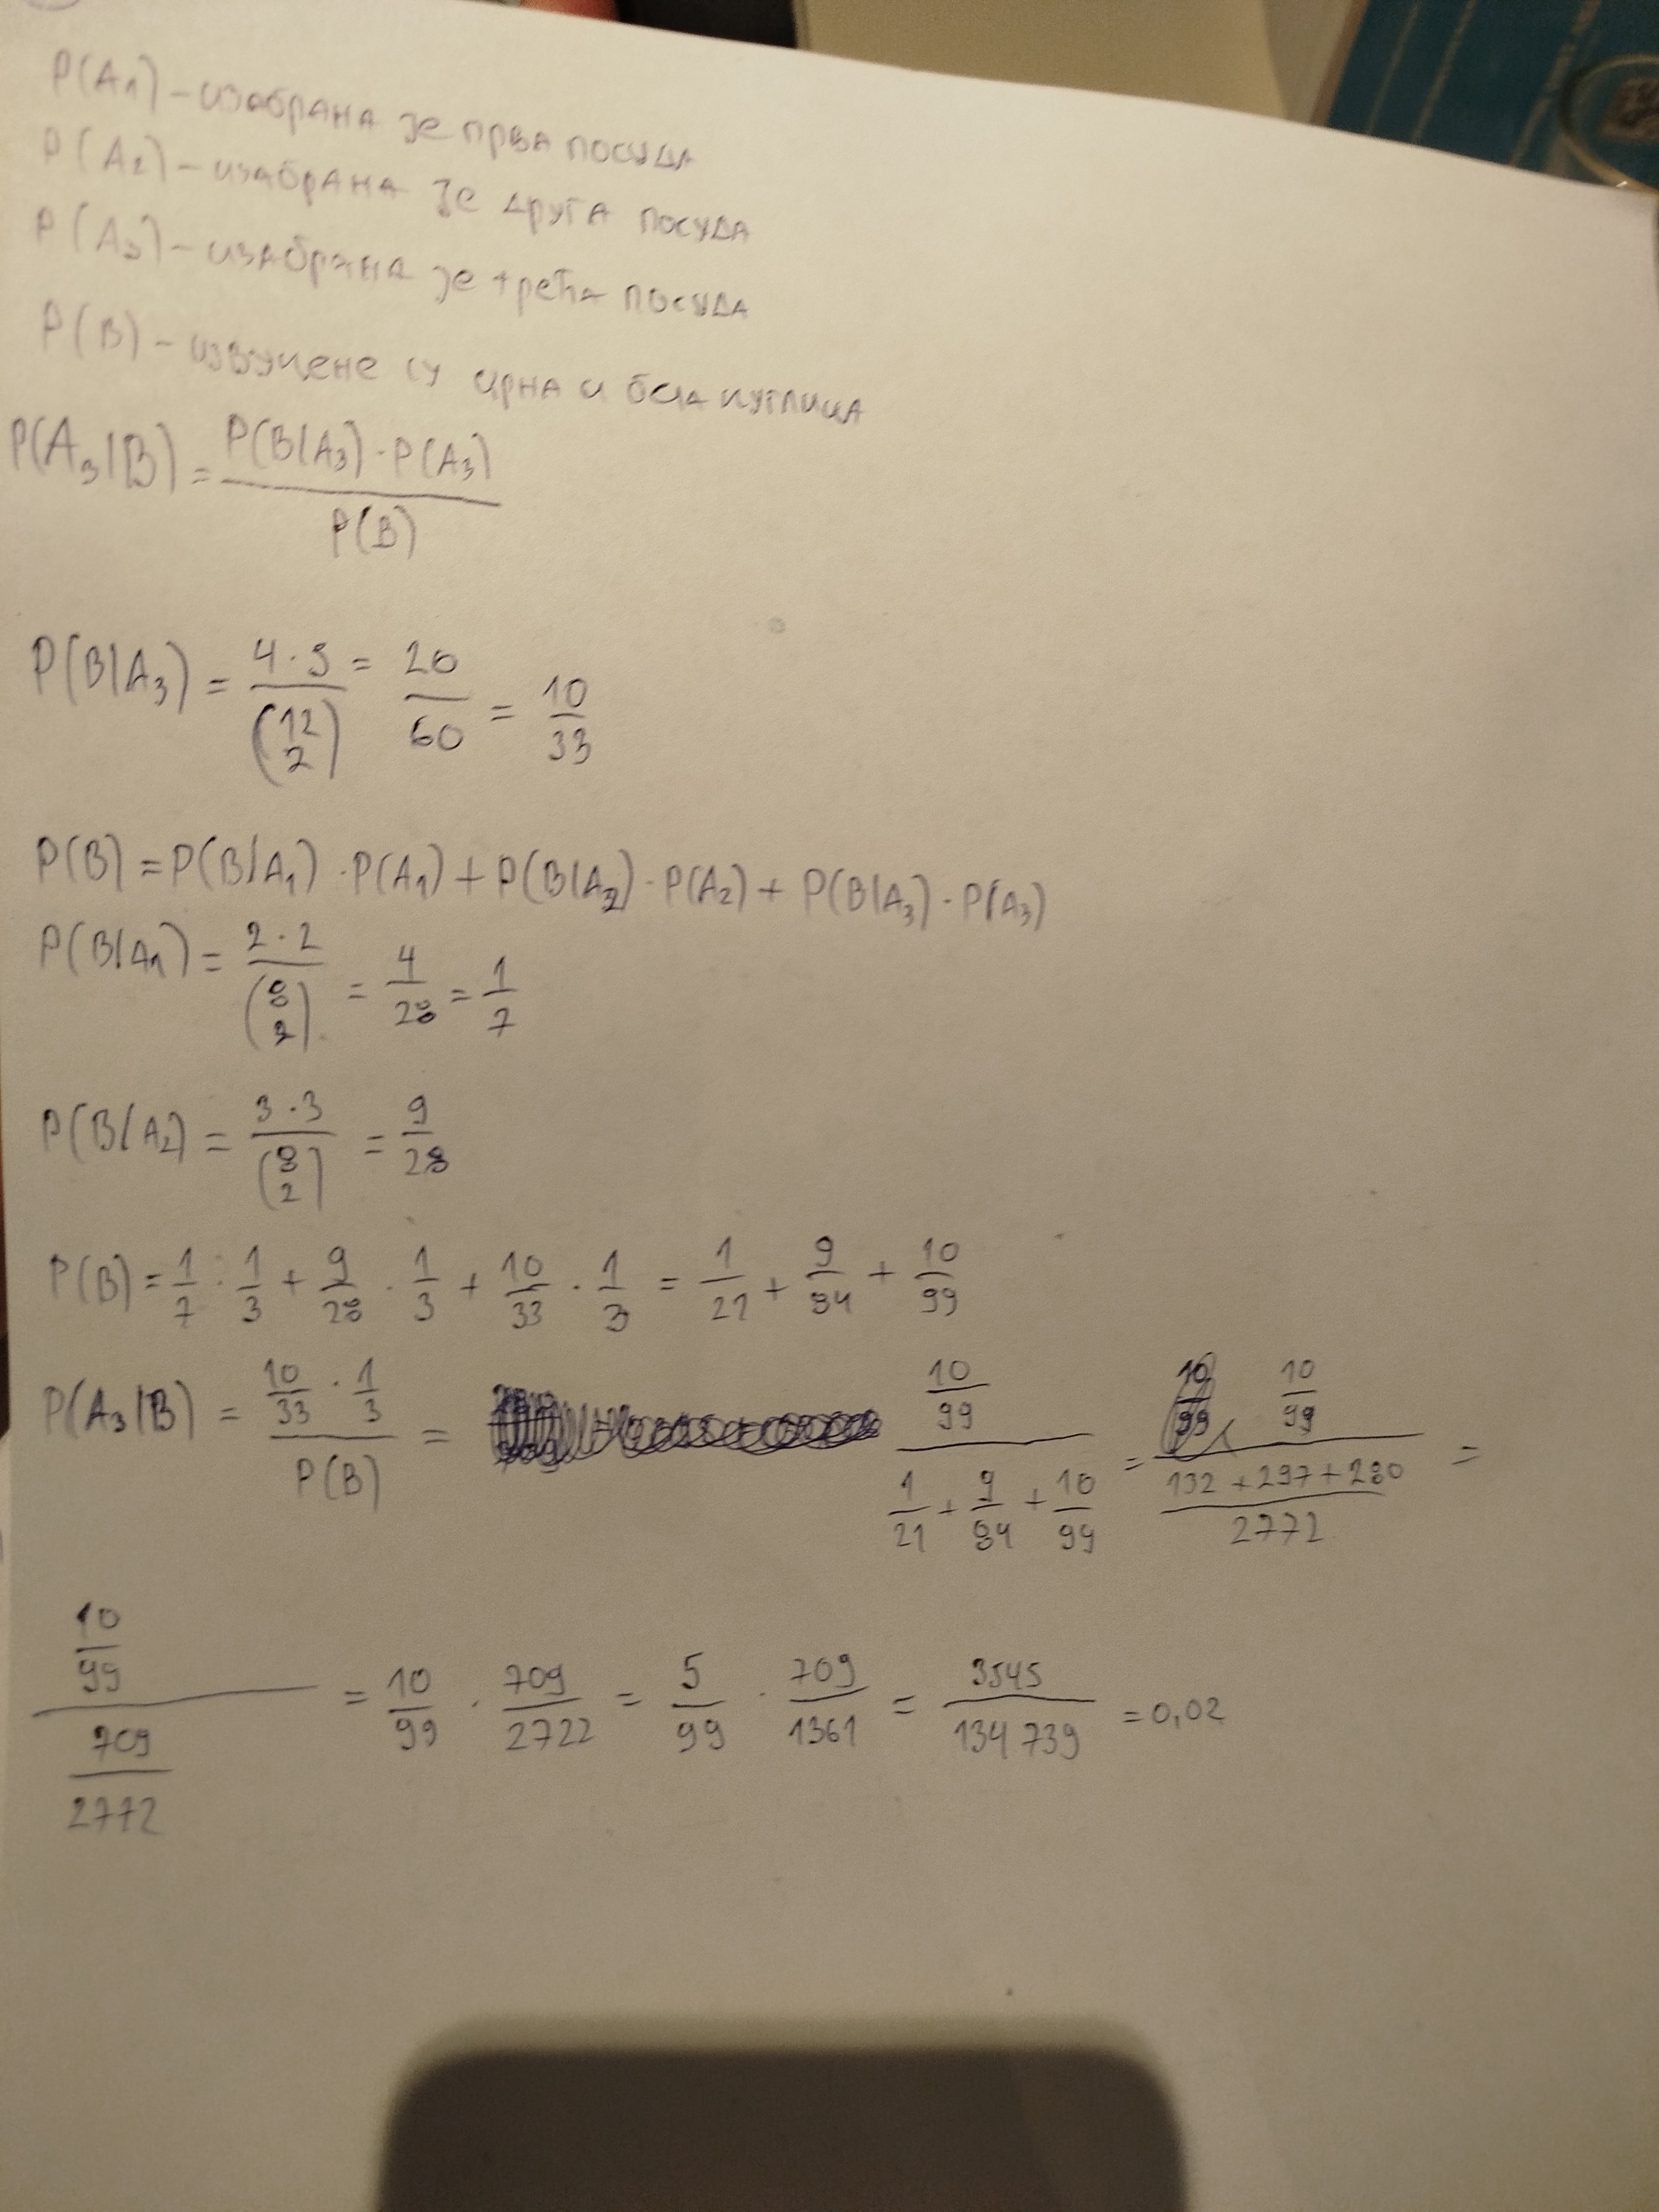 P(A1) - изабрана је прва посуда
P(A2) - изабрана је друга посуда
P(A3) - изабрана је трећа посуда
P(B) - извучене су црна и бела куглица
P(A3|B) = P(B|A3) · P(A3) / P(B)
P(B|A3) = 4 · 5 / (12 2) = 20 / 60 = 10 / 33
P(B) = P(B|A1) · P(A1) + P(B|A2) · P(A2) + P(B|A3) · P(A3)
P(B|A1) = 2 · 2 / (8 2) = 4 / 28 = 1 / 7
P(B|A2) = 3 · 3 / (8 2) = 9 / 28
P(B) = 1/7 · 1/3 + 9/28 · 1/3 + 10/33 · 1/3 = 1/21 + 9/84 + 10/99
P(A3|B) = 10/33 · 1/3 / P(B) = 10/99 / (1/21 + 9/84 + 10/99) = 10/99 / (132 + 297 + 280 / 2772) =
10/99 / 709/2772 = 10/99 · 709/2722 = 5/99 · 709/1361 = 3545/134739 = 0,02